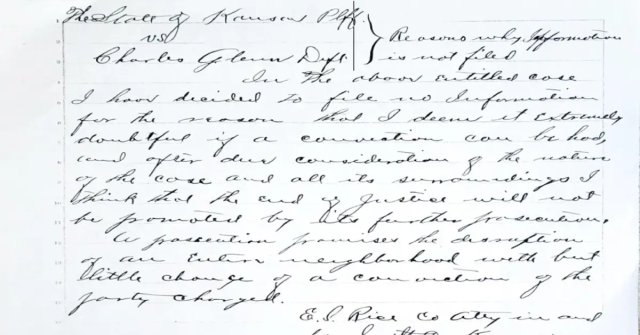 The State of Kansas Plff.
vs
Charles Glenn Deft.
Reasons why Information
is not filed
In the above entitled case
I have decided to file no Information
for the reason that I deem it Extremely
doubtful if a conviction can be had,
and after due consideration of the nature
of the case and all its surroundings I
think that the end of Justice will not
be promoted by its further prosecution.
A prosecution promises the disruption
of an Entire neighborhood with but
little change of a conviction of the
party charged.
E. I. Rice Co Atty in and